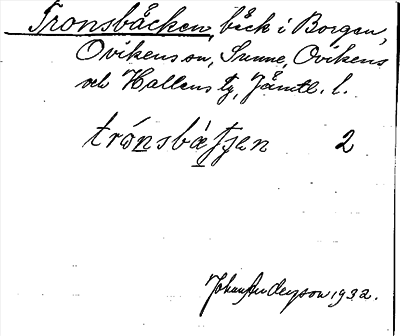 Tronsbäcken bäck i Borgen,
Ovikens sn, Sunne, Ovikens
och Hallens tg, Jämtl. l.
trónsbátjen 2
Johan Anderson 1932.